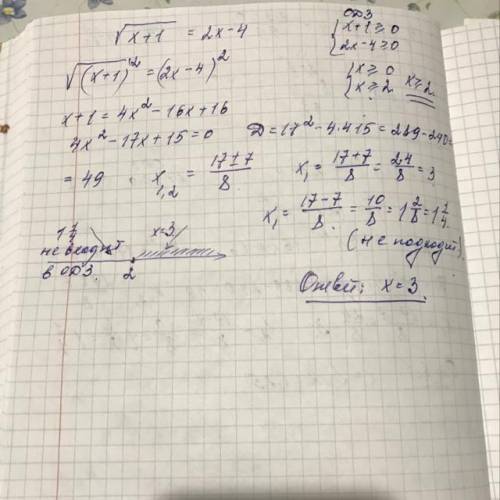 √(x+1) = 2x-4
ОДЗ
{ x+1≥0
2x-4≥0
√(x+1)² = (2x-4)²
{ x≥0
x≥2 x≥2
x+1 = 4x²-16x+16
4x²-17x+15=0
D=17²-4·415=289-240=
= 49. x₁,₂ = (17±7)/8
x₁ = (17+7)/8 = 24/8 = 3
x₁ = (17-7)/8 = 10/8 = 1 2/8 = 1 1/4
(не подходит)
1 1/4
не входит
в ОДЗ.
x=3
2
Ответ: x=3.